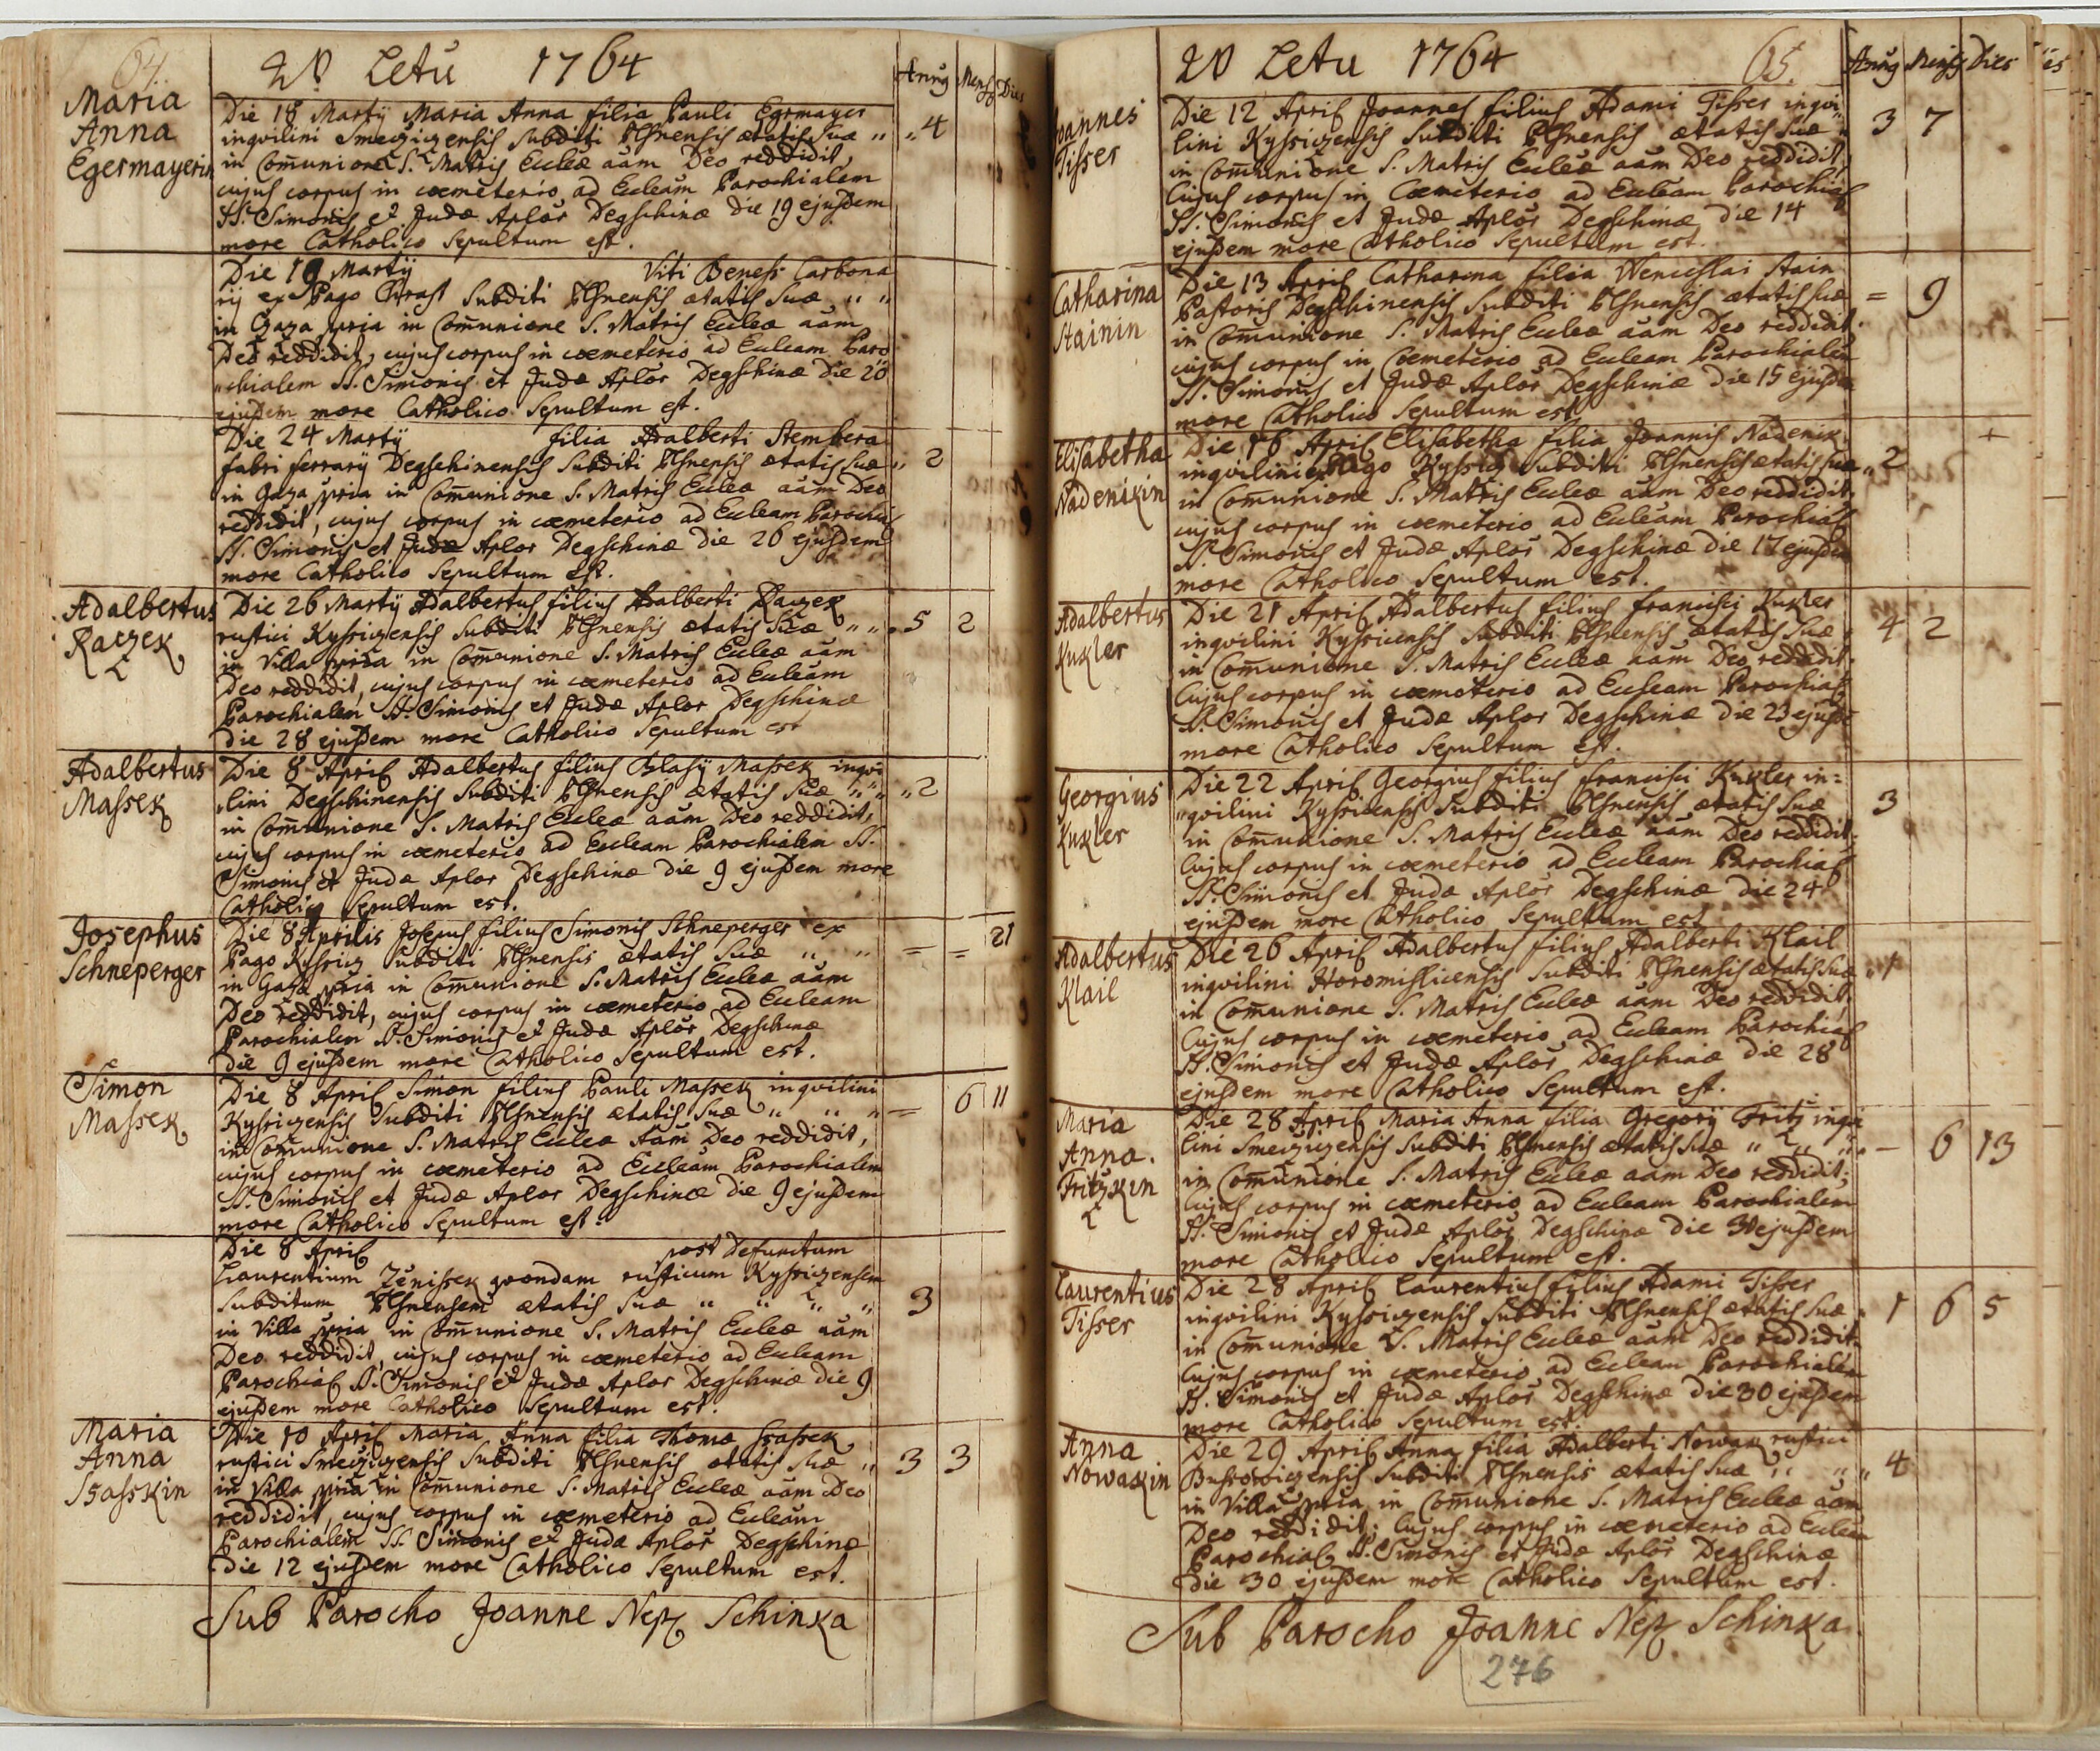 64.
Letu 1764
Anno Mens Dies
Maria
Anna
Egermayerin
Die 18 Martÿ Maria Anna filia Pauli Egrmayer
inqvilini Smeczizensis Subditi Plsnensis ætatis Suæ „ „ 4
in Com̄unione S. Matris Eccleæ aām Deo reddidit,
cujus corpus in cœmeterio ad Eccleam Parochialem
SS. Simonis et Judæ Aplor Degschinæ die 19 ejusdem
more Catholico Sepultum est.
Die 19 Martÿ Viti Benesh Carbona
rij ex Pago Chrast Subditi Plsnensis ætatis Suæ „ „
in Gaza ꝓria in Com̄unione S. Matris Eccleæ aām
Deo reddidit, cujus corpus in cœmeterio ad Eccleam Paro
„chialem SS. Simonis et Judæ Aplor Degschinæ die 20
ejusdem more Catholico Sepultum est.
Die 24 Martÿ filia Adalberti Stembera
fabri ferrarÿ Degschinensis Subditi Plsnensis ætatis Suæ „ 2
in Gaza ꝓria in Com̄unione S. Matris Eccleæ aām Deo
reddidit, cujus corpus in cœmeterio ad Eccleam Parochial
SS. Simonis et Judæ Aplor Degschinæ die 26 ejusdem
more Catholico Sepultum est.
Adalbertus
Raczek
Die 26 Martÿ Adalbertus filius Adalberti Raczek
rustici Kysriczensis Subditi Plsnensis ætatis Suæ „ „ 5 2
in Villa ꝓria in Com̄unione S. Matris Eccleæ aām
Deo reddidit, cujus corpus in cœmeterio ad Eccleam
Parochialem SS. Simonis et Judæ Aplor Degschinæ
die 28 ejusdem more Catholico Sepultum est
Adalbertus
Massek
Die 8 April Adalbertus filius Blasÿ Massek inqvi
„lini Degschinensis Subditi Plsnensis ætatis Suæ „ „ „ 2
in Com̄unione S. Matris Eccleæ aām Deo reddidit,
cujus corpus in cœmeterio ad Eccleam Parochialem SS.
Simonis et Judæ Aplor Degschinæ die 9 ejusdem more
Catholico Sepultum est.
Josephus
Schneperger
Die 8 Aprilis Josepus filius Simonis Schneperger ex
Pago Kysricz Subditi Plsnensis ætatis Suæ „ „ = = 21
in Gaza ꝓria in Com̄unione S. Matris Eccleæ aām
Deo reddidit, cujus corpus in cœmeterio ad Eccleam
Parochialem SS. Simonis et Judæ Aplor Degschinæ
die 9 ejusdem more Catholico Sepultum est.
Simon
Massek
Die 8 April Simon filius Pauli Massek inqvilini
Kysriczensis Subditi Plsnensis ætatis Suæ „ „ „ = 6 11
in Com̄unione S. Matris Eccleæ Aām Deo reddidit,
cujus corpus in cœmeterio ad Eccleam Parochialem
SS. Simonis et Judæ Aplor Degschinæ die 9 ejusdem
more Catholico Sepultum est.
Die 8 April post defunctum
Laurentium Zenissek qvondam rusticum Kysriczensem
Subditum Plsnensem ætatis Suæ „ „ „ „ 3
in Villa ꝓria in Com̄unione S. Matris Eccleæ aām
Deo reddidit, cujus corpus in cœmeterio ad Eccleam
Parochial SS. Simonis et Judæ Aplor Degschinæ die 9
ejusdem more Catholico Sepultum est.
Maria
Anna
Die 10 April Maria Anna filia Thomæ
rustici Smeczizensis Subditi Plsnensis ætatis Suæ „ 3 3
in Villa ꝓria in Com̄unione S. Matris Eccleæ aām Deo
reddidit, cujus corpus in cœmeterio ad Eccleam
Parochialem SS. Simonis et Judæ Aplor Degschinæ
die 12 ejusdem more Catholico Sepultum est.
Sub Parocho Joanne Nep Schinka
65.
Letu 1764
Anno Mens Dies
Joannes
Tisser
Die 12 April Joannes filius Adami Tisser inqvi
lini Kysriczensis Subditi Plsnensis ætatis Suæ 3 7
in Com̄unione S. Matris Eccleæ aām Deo reddidit,
Cujus corpus in Cœmeterio ad Eccleam Parochial
SS. Simonis et Judæ Aplor Degschinæ die 14
ejusdem more Catholico Sepultum est.
Catharina
Stainin
Die 13 April Catharina filia Wenceslai Stain
Pastoris Degschinensis Subditi Plsnensis ætatis Suæ = 9
in Com̄unione S. Matris Eccleæ aām Deo reddidit.
cujus corpus in Cœmeterio ad Eccleam Parochialem
SS. Simonis et Judæ Aplor Degschinæ die 15 ejusdem
more Catholico Sepultum est
Elisabetha
Nadenikin
Die 16 April Elisabetha filia Joannis Nadenik
inqvilini ex Pago Kyssricz Subditi Plsnensis ætatis Suæ „ 2
in Com̄unione S. Matris Eccleæ aām Deo reddidit,
cujus corpus in cœmeterio ad Eccleam Parochial
SS. Simonis et Judæ Aplor Degschinæ die 17 ejusdem
more Catholico Sepultum est.
Adalbertus
Kukler
Die 21 April Adalbertus filius Francisci Kukler
inqvilini Kysricensis Subditi Plsnensis ætatis Suæ 4 2
in Com̄unione S. Matris Eccleæ aām Deo reddidit.
Cujus corpus in cœmeterio ad Eccleam Parochial
SS. Simonis et Judæ Aplor Degschinæ die 23 ejusde
more Catholico Sepultum est.
Georgius
Kukler
Die 22 April Georgius filius Francisci Kukler in=
„qvilini Kysricensis Subditi Plsnensis ætatis Suæ 3
in Com̄unione S. Matris Eccleæ aām Deo reddidit.
Cujus corpus in cœmeterio ad Eccleam Parochial
SS. Simonis et Judæ Aplor Degschinæ die 24
ejusdem more Catholico Sepultum est
Adalbertus
Klail
Die 26 April Adalbertus filius Adalberti Klail
inqvilini Horomislicensis Subditi Plsnensis ætatis Suæ „ 1
in Com̄unione S. Matris Eccleæ aām Deo reddidit,
Cujus corpus in cœmeterio ad Eccleam Parochial
SS. Simonis et Judæ Aplor Degschinæ die 28
ejusdem more Catholico Sepultum est.
Maria
Anna.
Fritzkin
Die 28 April Maria Anna filia Gregorÿ Fritz inqvi
lini Smeczizensis Subditi Plsnensis ætatis Suæ „ „ „ – 6 13
in Com̄unione S. Matris Eccleæ aām Deo reddidit;
Cujus corpus in cœmeterio ad Eccleam Parochialem
SS. Simonis et Judæ Aplor Degschinæ die 30 ejusdem
more Catholico Sepultum est.
Laurentius
Tisser
Die 28 April Laurentius filius Adami Tisser
inqvilini Kysriczensis Subditi Plsnensis ætatis Suæ 1 6 5
in Com̄unione S. Matris Eccleæ aām Deo reddidit.
Cujus corpus in cœmeterio ad Eccleam Parochialem
SS. Simonis et Judæ Aplor Degschinæ die 30 ejusdem
more Catholico Sepultum est.
Anna
Nowakin
Die 29 April Anna filia Adalberti Nowak rustici
Subditi Plsnensis ætatis Suæ „ „ „ 4
in Villa ꝓria in Com̄unione S. Matris Eccleæ aām
Deo reddidit; Cujus corpus in cœmeterio ad Eccleam
Parochial SS. Simonis et Judæ Aplor Degschinæ
die 30 ejusdem more Catholico Sepultum est.
Sub Parocho Joanne Nep Schinka
276